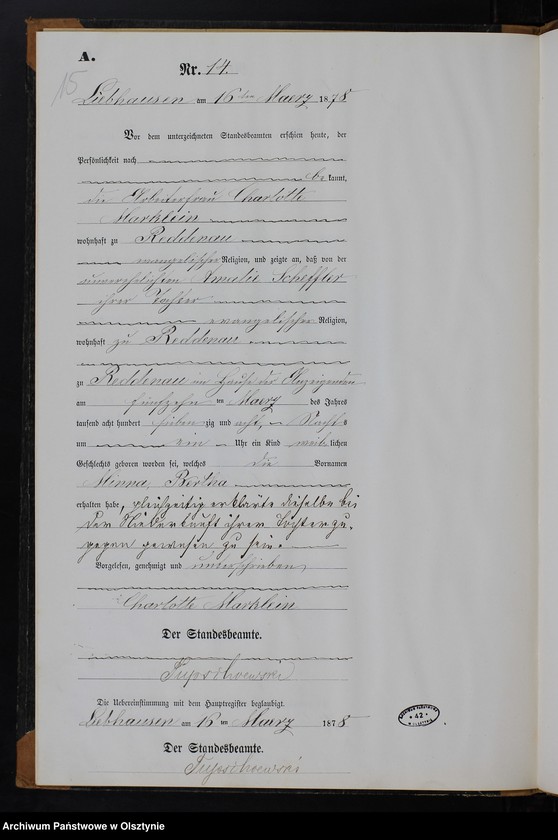 A.
15
Nr. 14.
Liebhausen am 16ten Maerz 1878
Vor dem unterzeichneten Standesbeamten erschien heute, der
Persönlichkeit nach
be kannt,
die Arbeiterfrau Charlotte
Marklein
wohnhaft zu Reddenau
evangelischer Religion, und zeigte an, daß von der
unverehelichten Amalie Scheffler
ihrer Tochter
evangelischer Religion,
wohnhaft zu Reddenau
zu Reddenau im Hause der Anzeigenden
am fünfzehn ten Maerz des Jahres
tausend acht hundert sieben zig und acht, Nachts
um ein Uhr ein Kind weib lichen
Geschlechts geboren worden sei, welches die Vornamen
Minna, Bertha
erhalten habe, gleichzeitig erklärte dieselbe bei
der Niederkunft ihrer Tochter zu-
gegen gewesen zu sein.
Vorgelesen, genehmigt und unterschrieben
Charlotte Marklein
Der Standesbeamte.
Die Uebereinstimmung mit dem Hauptregister beglaubigt.
Liebhausen am 16 ten Maerz 1878
Der Standesbeamte.
42
Archiwum Państwowe w Olsztynie